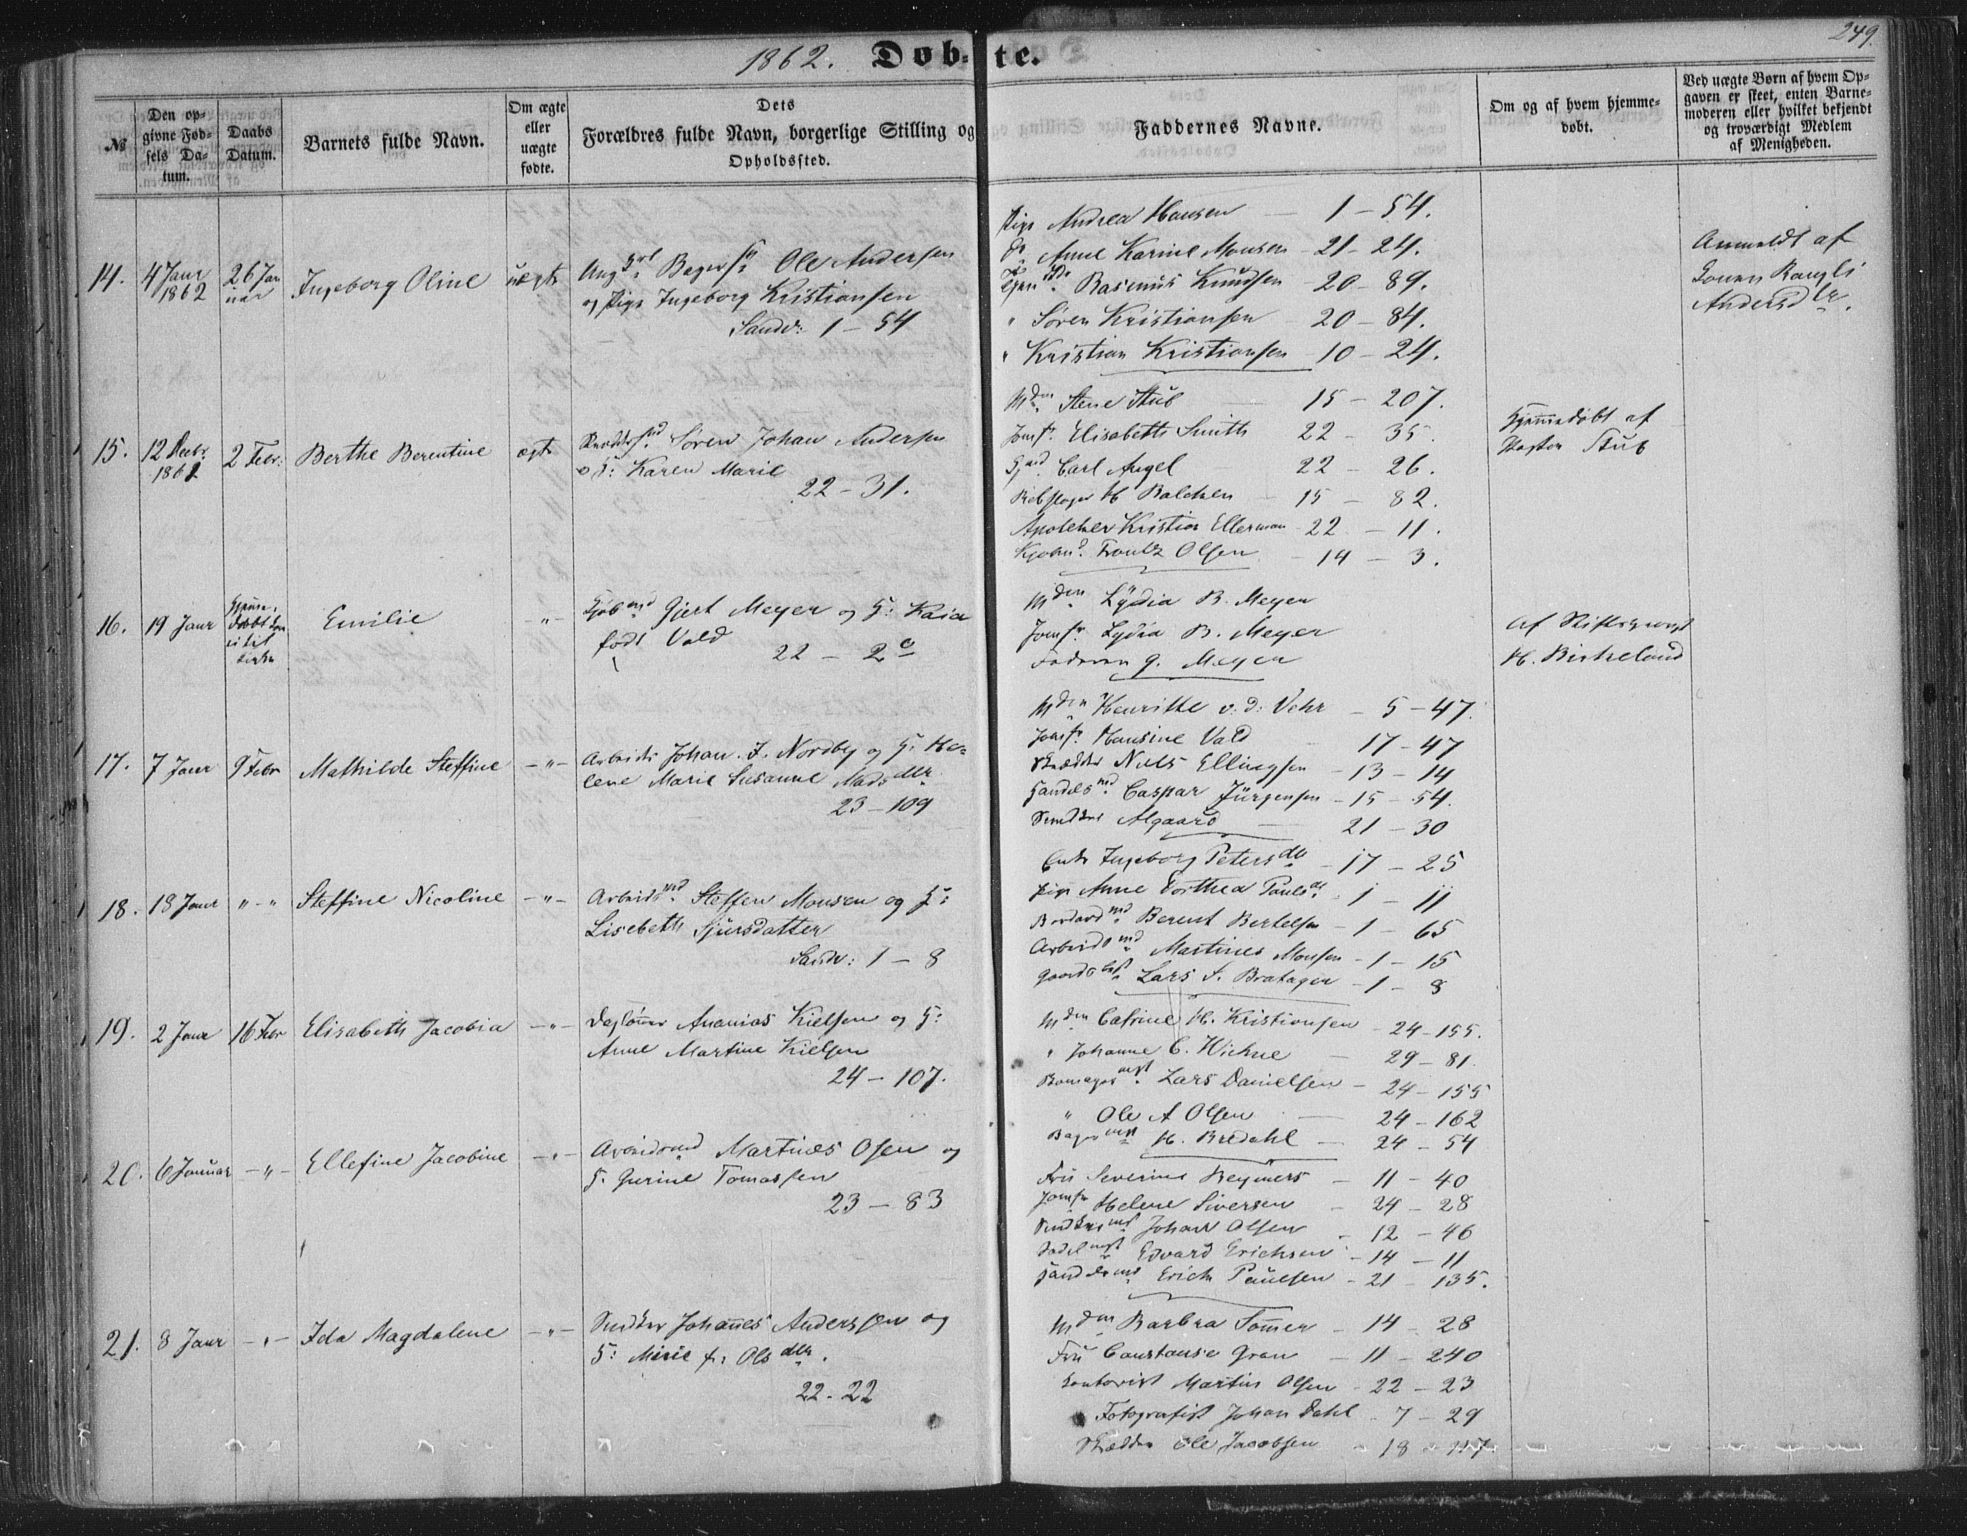 1862. Døb-te. 249.
№
Den op-
givne Fød-
sels Da-
tum.
Daabs
Datum.
Barnets fulde Navn.
Om ægte
eller
uægte
fødte.
Dets
Forældres fulde Navn, borgerlige Stilling og
Opholdssted.
Faddernes Navne.
Om og af hvem hjemme-
døbt.
Ved uægte Børn af hvem Op-
gaven er skeet, enten Barne-
moderen eller hvilket bekjendt
og troværdigt Medlem
af Menigheden.
14. 4 Janr 1862
26 Jan
uar
Ingeborg Oline
uægte
Ole Andersen
og Pige Ingeborg Kristiansen
Sandv: 1 – 54
Pige Andrea Hansen – 1 – 54.
do Anne Karine Monsen – 21 – 24.
Rasmus Knudsen – 20 – 89.
" Søren Kristiansen – 20 – 84.
" Kristian Kristiansen – 10 – 24.
Anmeldt af
Andersdtr.
15. 12 Decbr
1861
2 Febr:
Berthe Berentine
ægte
Søren Johan Andersen
o H: Karen Marie
22 – 31.
Mden Stene Stub 15 – 207.
Jomfr. Elisabeth Smith 22 – 35.
Carl Angel 22 – 26.
Rebslager H Balchen – 15 – 82.
Apoteker Kristian Ellerman – 22 – 11.
Kjøbmd. Frantz Olsen – 14 – 3.
Hjemmedøbt af
Pastor Stub
16. 19 Janr
Emilie
"
Gjert Meyer og H: Kaia
født Vald
22 – 2 c
Mden Lydia B. Meyer
Jomfr. Lydia B. Meyer
Faderen G. Meyer
af Stiftsprovst
H. Birkeland
17. 7 Janr
9 Febr
Mathilde Steffine
– " –
Arbeids Johan. F. Nordby og H: He-
lene Marie Susanne Madsdtr
23 – 109
Mden Henritte v. d: Vehr – 5 – 47.
Jomfr. Hansine Vald 17 – 47
Skrædder Niels Ellingsen – 13 – 14
Handelsmd Caspar Jürgensen – 15 – 54.
Algaard 21 – 30
18. 18 Janr
" – "
Steffine Nicoline
– " –
Arbeidsmd Steffen Monsen og H:
Lisebeth Sjursdatter
Sandv: 1 – 8
Enke Ingeborg Petersdtr – 17 – 25
Pige Anne Dorthea Paulsdr – 1 – 11
Berent Bertelsen – 1 – 65
Arbeidsmd Martines Monsen – 1 – 15
Lars F. Bratager – 1 – 8
19. 2 Janr
16 Febr
Elisabeth Jacobia
– " –
Dagløner Ananias Kielsen og H:
Anne Martine Kielsen
24 – 107.
Mden Catrine H. Kristiansen – 24 – 155.
" Johanne C. Wichne – 29 – 81.
Lars Danielsen – 24 – 155
" Ole A Olsen – 24 – 162
Bagermst H. Bredahl – 24 – 54
20. 6 Januar
– " –
Ellefine Jacobine
– " –
Arbeidsmd Martines Olsen og
H. Gurine Tomassen
23 – 83
Fru Severine Reymers – 11 – 40
Jomfr Helene Siversen – 24 – 28
Johan Olsen – 12 – 46
Edvard Erichsen – 14 – 11
Handelsmd Erich Paulsen – 21 – 135.
21. 8 Janr
– " –
Ida Magdalene
– " –
Snedker Johanes Anderssen og
H: Marie f: Olsdtr.
22 – 22
Mden Barbra Somer – 14 – 28
Fru Constanse Gran – 11 – 240
Kontorist Martin Olsen – 22 – 23
Fotografist Johan Dahl – 7 – 29
Skrædder Ole Jacobsen – 18 – 117